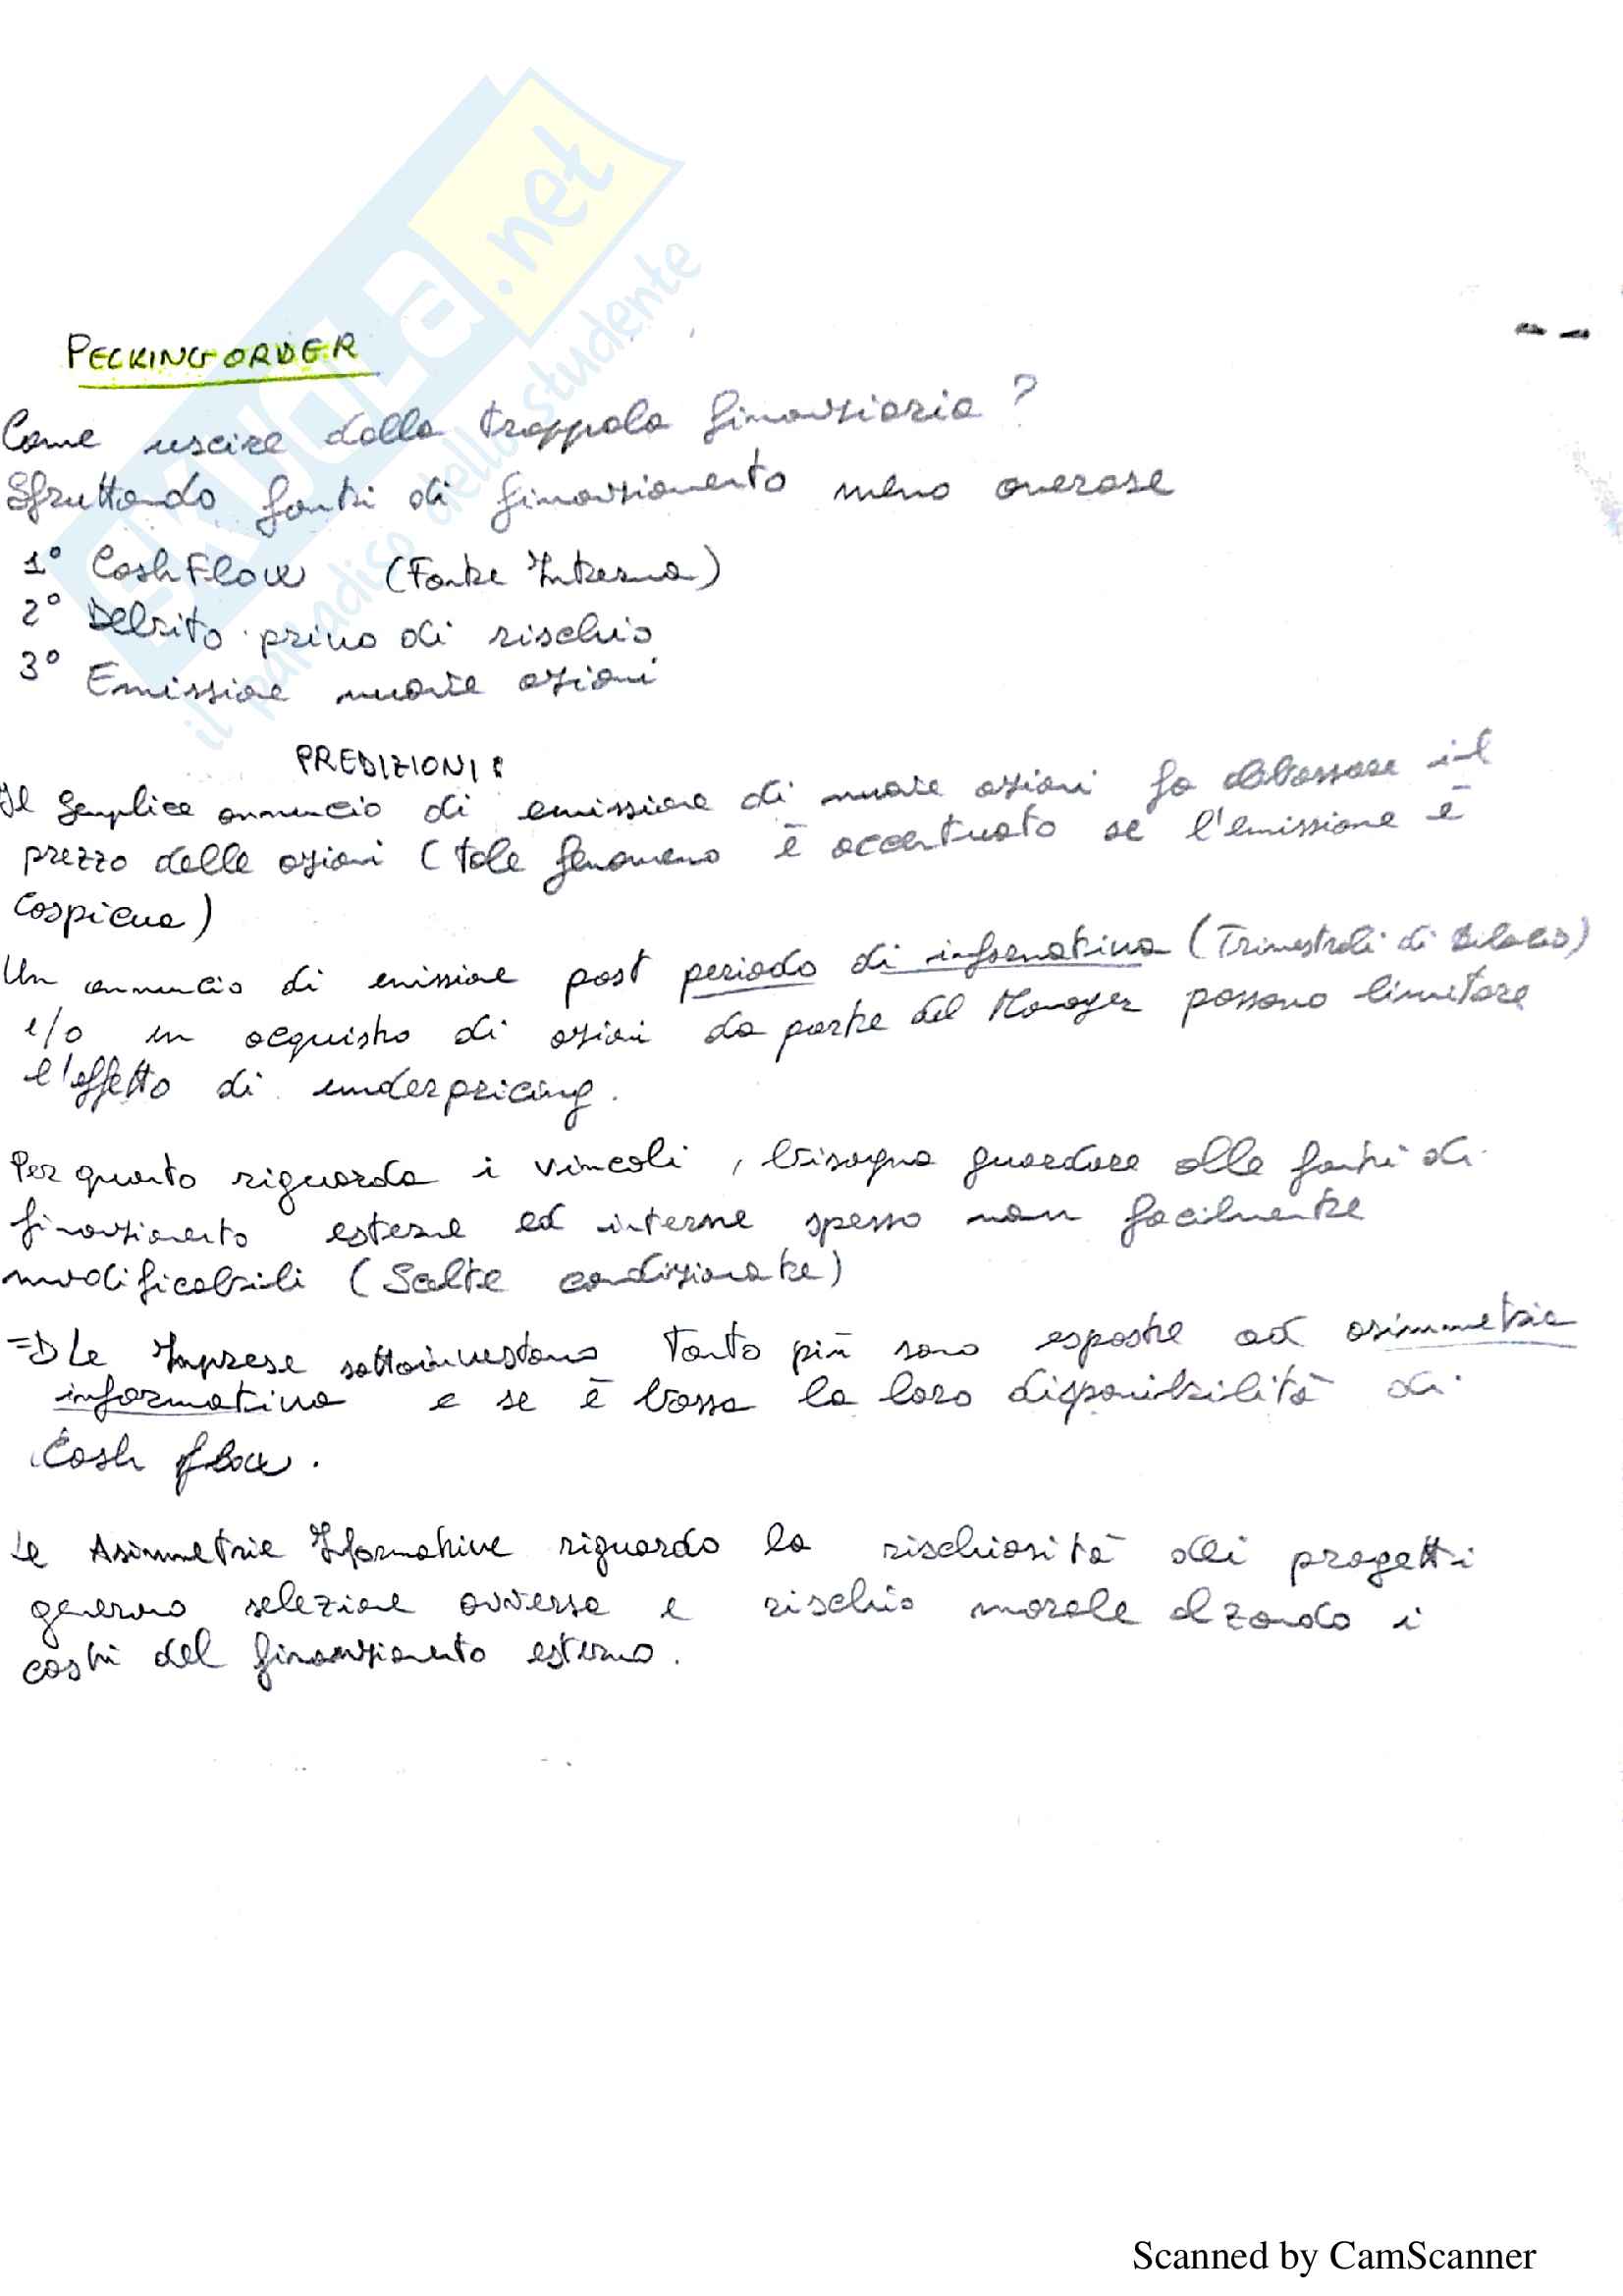 SKUOLa.net
il paradiso dello studente
PECKING ORDER
Come uscire dalla trappola finanziaria?
Sfruttando fonti di finanziamento meno onerose
1° Cash Flow (Fonte Interna)
2° Debito privo di rischio
3° Emissione nuove azioni
PREDIZIONI:
Il semplice annuncio di emissione di nuove azioni fa abbassare il
prezzo delle azioni (tale fenomeno è accentuato se l'emissione è
cospicua)
Un annuncio di emissione post periodo di informativa (Trimestrali di Bilancio)
e/o un acquisto di azioni da parte del Manager possono limitare
l'effetto di underpricing.
Per quanto riguarda i vincoli, bisogna guardare alle fonti di
finanziamento esterne ed interne spesso non facilmente
modificabili (Scelte condizionate)
=D Le Imprese sottoinvestono tanto più sono esposte ad asimmetria
informativa e se è bassa la loro disponibilità di
Cash flow.
Le Asimmetrie Informative riguardo la rischiosità dei progetti
generano selezione avversa e rischio morale alzando i
costi del finanziamento esterno.
Scanned by CamScanner